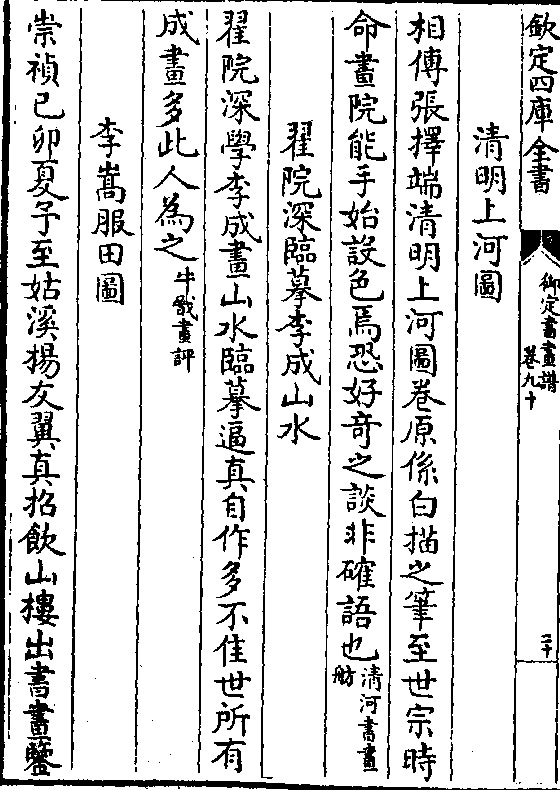 欽定四庫全書
御定書畫譜
卷九十
二十
清明上河圖
相傳張擇端清明上河圖卷原係白描之筆至世宗時
命畫院能手始設色焉恐好奇之談非確語也清河書畫
舫
翟院深臨摹李成山水
翟院深學李成畫山水臨摹逼真自作多不佳世所有
成畫多此人為之牛戩畫評
李嵩服田圖
崇禎己卯夏予至姑溪楊友翼真招飲山樓出書畫鑒